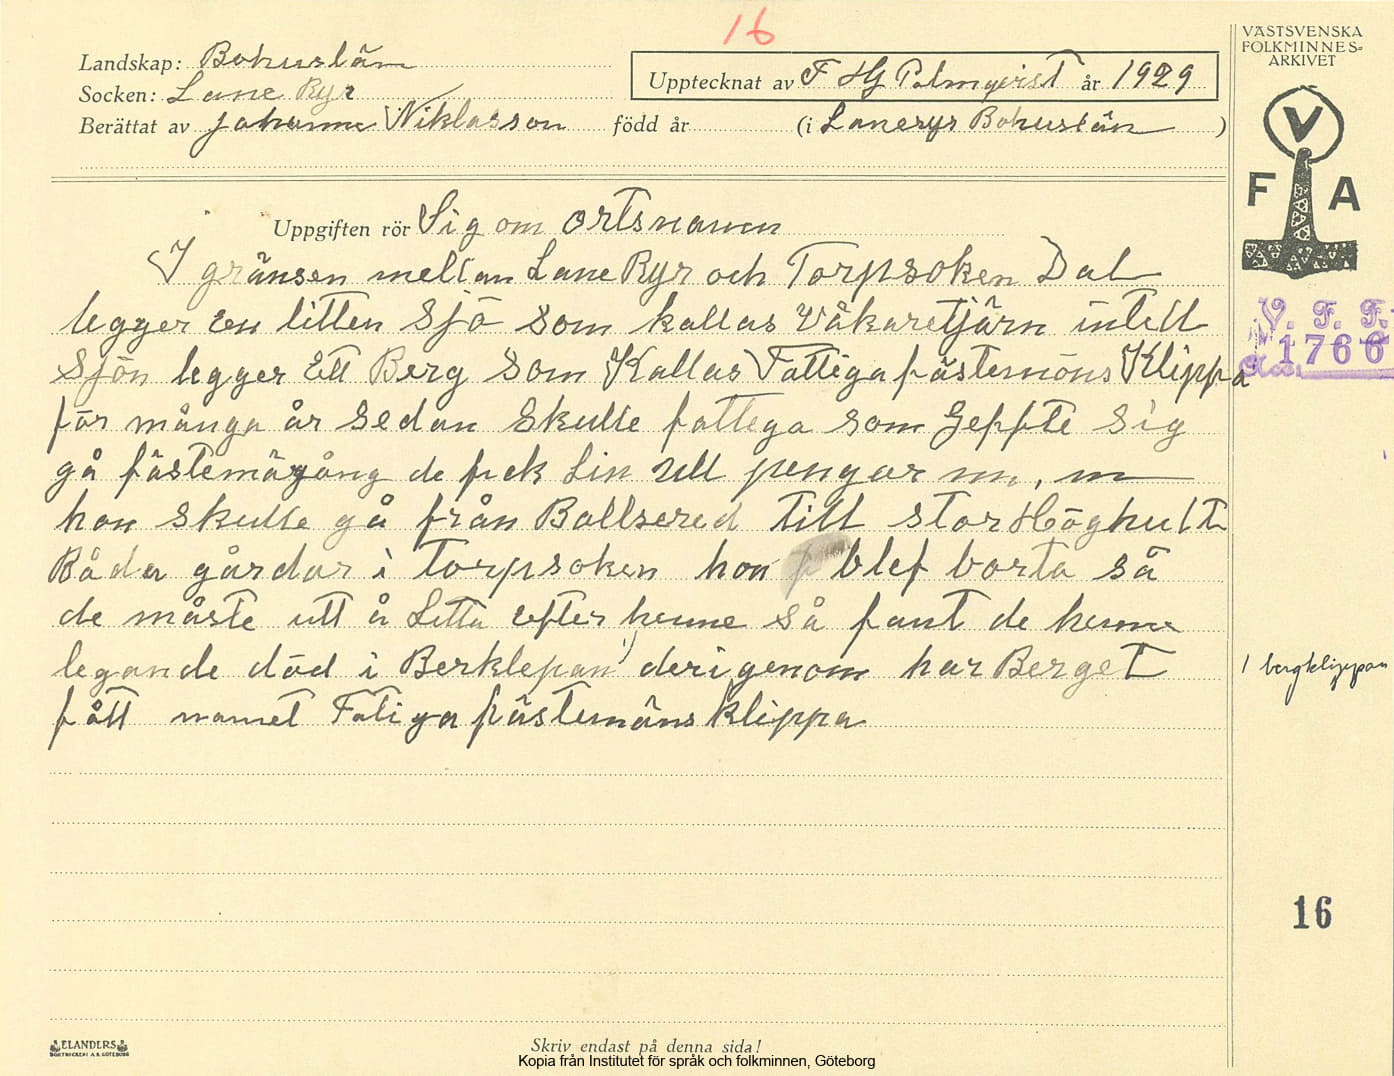 16
VÄSTSVENSKA
FOLKMINNES=
ARKIVET
Landskap: Bohuslän
Socken: Lane Ryr
Upptecknat av F HG Palmqvist år 1929
Berättat av Johanne Niklasson född år (i Laneryr Bohuslän)
V
F A
Uppgiften rör Sig om ortsnamn
I gränsen mellan Lane Ryr och Torpsoken Dal
legger en litten Sjö som kallas Våkaretjärn intill
V. F. F.
1766
Sjön legger Ett Berg som Kallas Fattiga fästemöns Klippa
för många år sedan skulle fattega som Geppte sig
gå fästemögång de fick Lin Ull pengar m, m
hon skulle gå från Ballsered till stor Höghult
Båda gårdar i Torpsoken hon blef borta så
de måste utt å Letta efter henne så fant de henne
legande död i Berklepan 1) derigenom har Berget
1 bergklippan
fått namet Fatiga fästemöns klippa
16
ELANDERS
BOKTRYCKERI A.B. GÖTEBORG
Skriv endast på denna sida!
Kopia från Institutet för språk och folkminnen, Göteborg